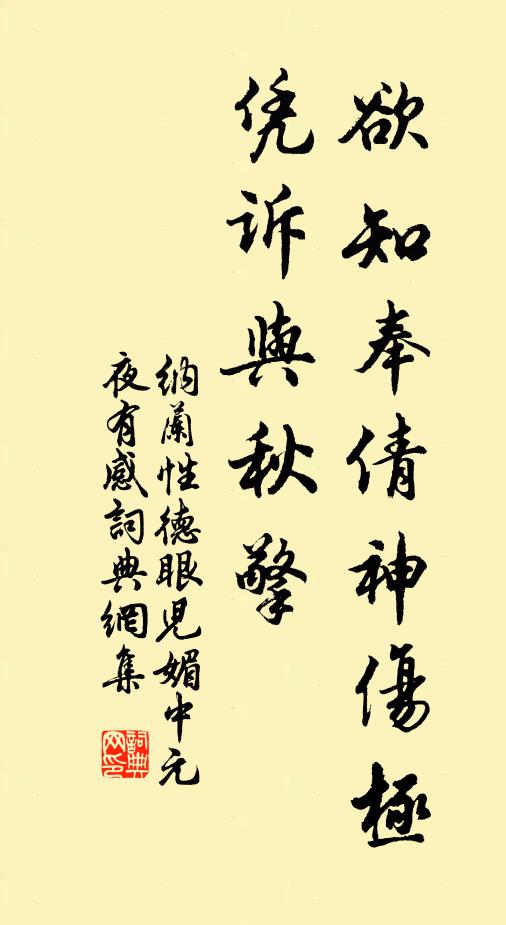 欲知奉倩神傷極
凭诉與秋擎
納蘭性德眼兒媚中元
夜有感詞典網集
詞典
网印